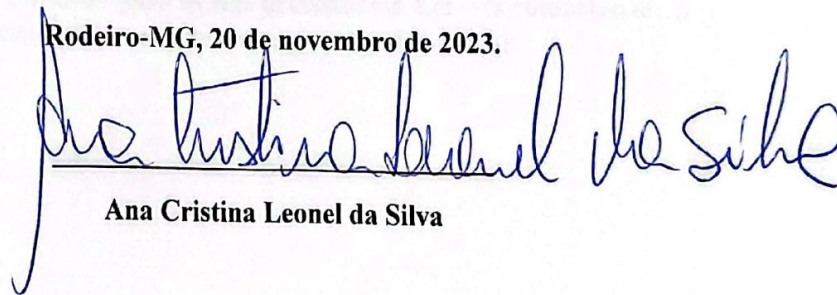 Rodeiro-MG, 20 de novembro de 2023.
Ana Cristina Leonel da Silva
Ana Cristina Leonel da Silva